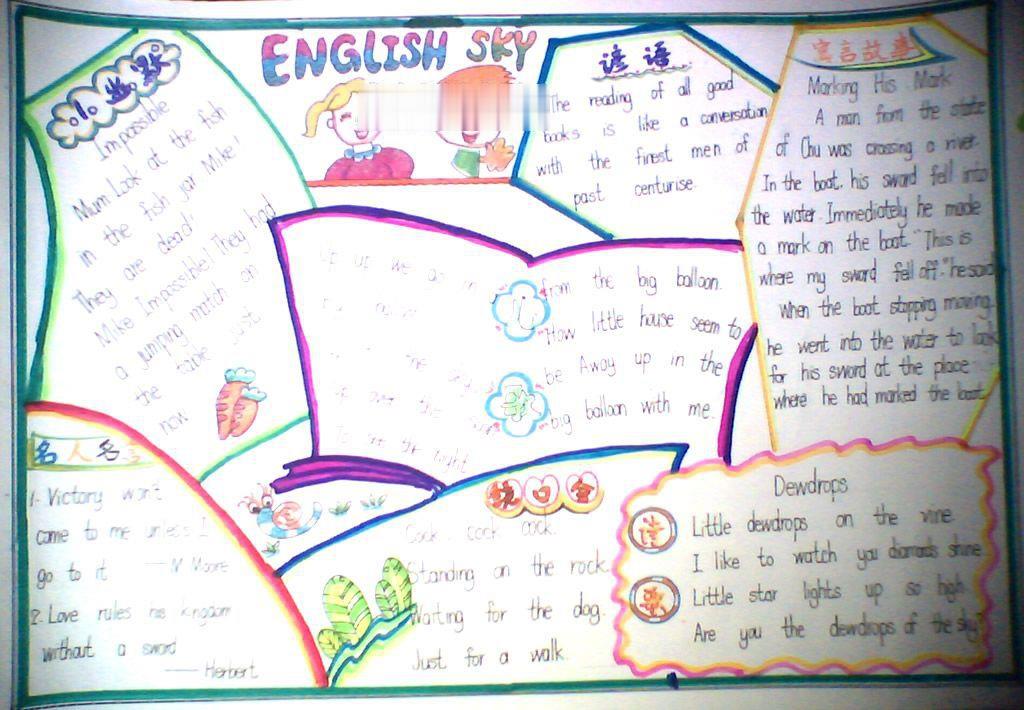 ENGLISH SKY
小幽默
Impossible
Mum Look at the fish
in the fish jar Mike!
They are dead"
Mike Impossible! They had
a jumping match on
the table just
now
谚语
The reading of all good
books is like a conversation
with the finest men of
past centurise.
寓言故事
Marking His Mark
A man from the state
of Chu was crossing a river.
In the boat, his sword fell into
the water. Immediately he made
a mark on the boat. "This is
where my sword fell off," he said
When the boat stopping moving,
he went into the water to look
for his sword at the place
where he had marked the boat.
Up up we go in
from the big balloon.
How little house seem to
be Away up in the
big balloon with me.
名人名言
1. Victory won't
come to me unless I
go to it ——M Moore
2. Love rules his kingdom
without a sword
——Herbert
绕口令
Cock, cock cock.
Standing on the rock.
Waiting for the dog.
Just for a walk.
诗歌
Dewdrops
Little dewdrops on the vine
I like to watch you diamonds shine.
Little star lights up so high
Are you the dewdrops of the sky?